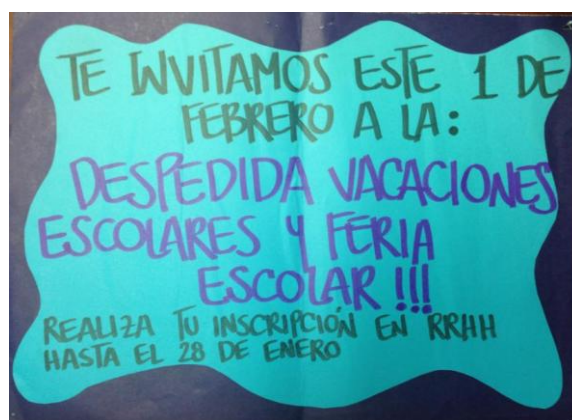 TE INVITAMOS ESTE 1 DE
FEBRERO A LA:
DESPEDIDA VACACIONES
ESCOLARES Y FERIA
ESCOLAR !!!
REALIZA TU INSCRIPCIÓN EN RRHH
HASTA EL 28 DE ENERO